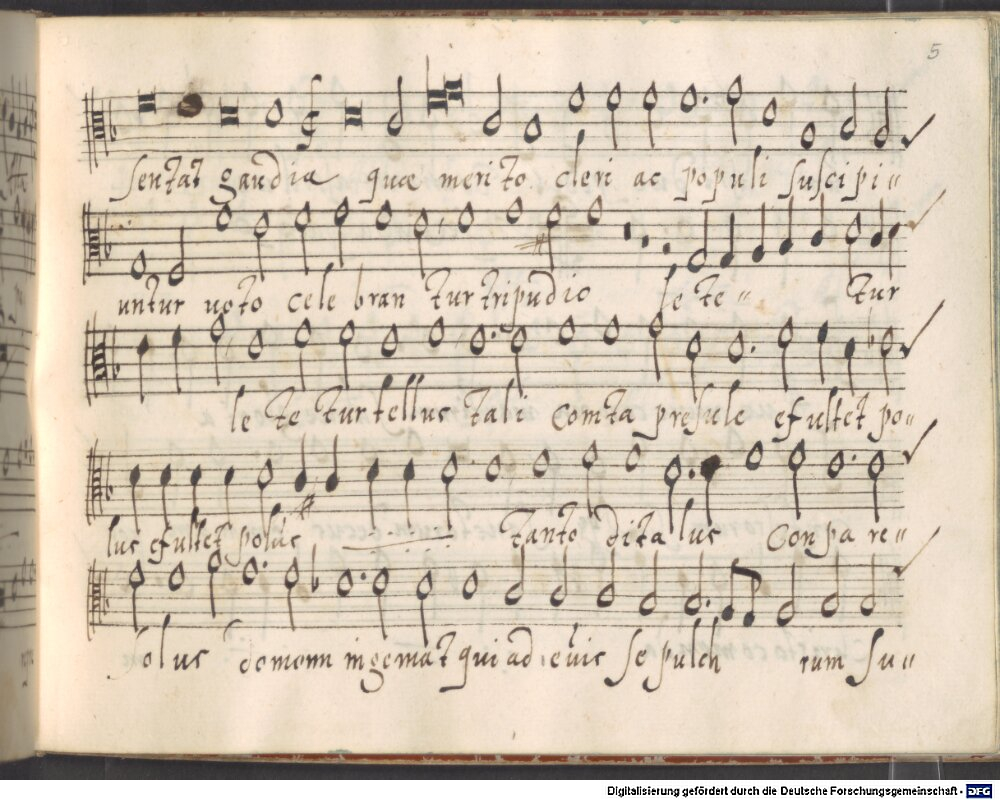 5
sentat gaudia quæ merito cleri ac populi suscipi"
untur uoto cele bran tur tripudio le te " tur
le te tur tellus tali Comta presule efultet po"
lus efultet polus tanto dita lus Con pa re"
olus domonn ingemat qui ad, Se pulch rum Su"
Digitalisierung gefördert durch die Deutsche Forschungsgemeinschaft - DFG